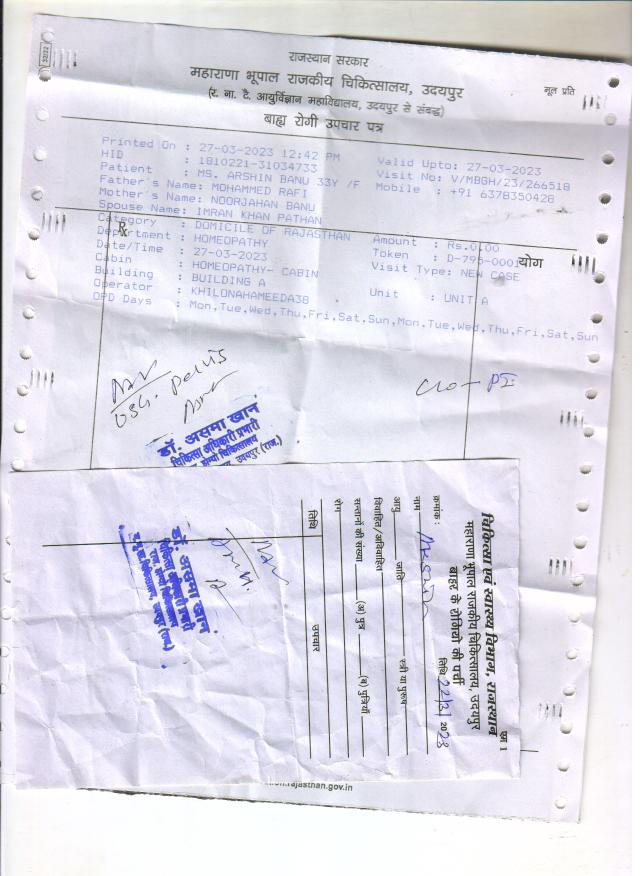 32/72
राजस्थान सरकार
महाराणा भूपाल राजकीय चिकित्सालय, उदयपुर
मूल प्रति
(र. ना. टै. आयुर्विज्ञान महाविद्यालय, उदयपुर से संबद्ध)
बाह्य रोगी उपचार पत्र
Printed On : 27-03-2023 12:42 PM Valid Upto: 27-03-2023
HID : 1810221-31034733 Visit No: V/MBGH/23/266518
Patient : MS. ARSHIN BANU 33Y /F Mobile : +91 6378350428
Father's Name: MOHAMMED RAFI
Mother's Name: NOORJAHAN BANU
Spouse Name: IMRAN KHAN PATHAN
Category : DOMICILE OF RAJASTHAN Amount : Rs.0.00
Rx
Department : HOMEOPATHY Token : D-795-0001 योग
Date/Time : 27-03-2023 Visit Type: NEW CASE
Cabin : HOMEOPATHY- CABIN
Building : BUILDING A Unit : UNIT A
Operator : KHILONAHAMEEDA38
OPD Days : Mon,Tue,Wed,Thu,Fri,Sat,Sun,Mon,Tue,Wed,Thu,Fri,Sat,Sun
USG. Pelvis
डॉ. असमा खान
चिकित्सा अधिकारी प्रभारी
उदयपुर (राज.)
पत्र 1
चिकित्सा एवं स्वास्थ्य विभाग, राजस्थान
महाराणा भूपाल राजकीय चिकित्सालय, उदयपुर
बाहर के रोगियों की पर्ची
क्रमांक : तिथि 2023
नाम
आयु जाति स्त्री या पुरुष
विवाहित/अविवाहित
सन्तानों की संख्या (अ) पुत्र (ब) पुत्रियाँ
रोग
तिथि उपचार
डॉ. असमा खान
चिकित्सा अधिकारी प्रभारी
rajasthan.gov.in